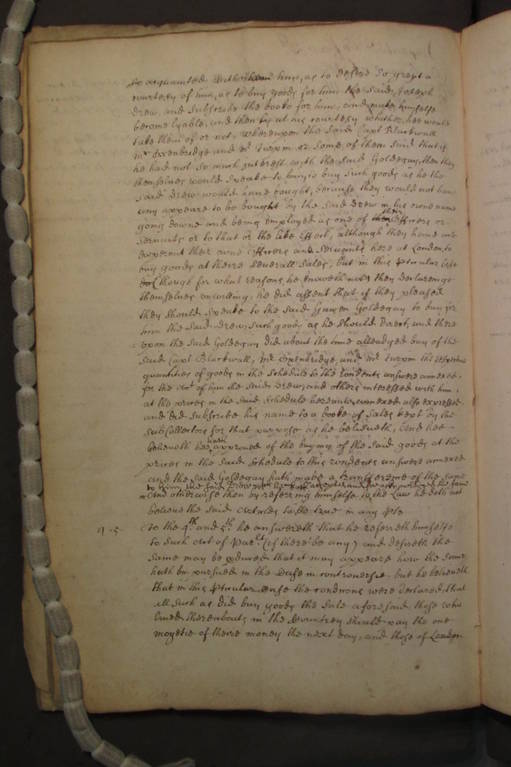 so acquainted with him, as to desire so great a
courtesy of him, as to buy goods for him the said Joseph
drew, and subscribe the booke for him, and make himselfe
become lyable, and then lay at his courtesy whither hee would
take them of or not, whereupon the said Capt Blackwall
mr Oxenbridge and mr Turpin or some of them said that if
he had not so much interest with the said Goldegay, then they
themselves would speake to him to buy such goods as he the
said drew would have bought, because they would not have
any appeare to be bought by the said drew in his owne name
going downe and being employed as one of their officers or
servants or to that or the like effect, although they have and
doe permit their owne officers and servants here at London to
buy goods at theire severall sales, but in this pticular case
though for what reasons he knoweth not they declareing
themselves unwilling, he did assent that if they pleased
they should speake to the said James Goldegay to buy for
him the said drew such goods as he should direct, and there
upon the said Goldegay did about the time alleadged buy of the
said Capt Blackwall, mr Oxenbridge, and mr Turpin the
quantities of goods in the schedule to this rondents answere annexed
for the Act of him the said drew, and others interessed with him,
at the prices in the said schedule hereunto annexed also expressed
and did subscribe his name to a booke of sales kept by the
subcollectors for that purpose as he beleiveth, and hee
beleiveth hee hath approved of the buying of the said goods at the
prices in the said schedule to this rondents answere annexed
and the said Goldegay hath made a transferrence of the same
to him the said drew
And otherwise then by referring himselfe to the law he doth not
beleive the said articles to be true in any pte
4. 5. To the 4th and 5th he answereth that he referreth himselfe
to such Act of Parlt (if there be any) and desireth the
same may be produced that it may appeare how the same
hath bin pursued in the Case in controversie but he beleiveth
that in this pticular case the conditions were declared, that
all such as did buy goods the sale aforesaid those who
lived thereabouts in the Countrey should pay the one
moyetie of theire money the next day, and those of London